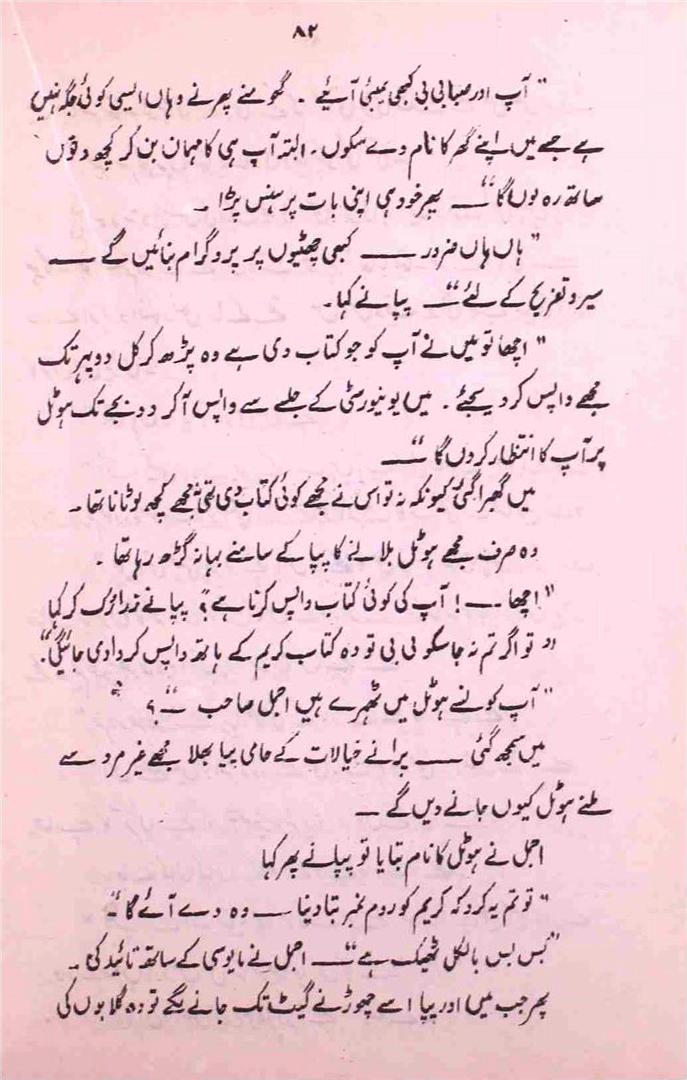 ۸۲
" آپ اور صبا بی بی کبھی بمبئی آیئے ۔ گھومنے پھرنے وہاں ایسی کوئی جگہ نہیں
ہے جسے میں اپنے گھر کا نام دے سکوں۔ البتہ آپ ہی کا مہمان بن کر کچھ دنوں
ساتھ رہ لوں گا " ـــ پھر خود ہی اپنی بات پر ہنس پڑا ۔
" ہاں ہاں ضرور ـــــ کبھی چھٹیوں پر پروگرام بنائیں گے ـــــ
سیر و تفریح کے لئے " ـــ پپا نے کہا ۔
" اچھا تو میں نے آپ کو جو کتاب دی ہے وہ پڑھ کر کل دوپہر تک
مجھے واپس کر دیجئے ۔ میں یونیورسٹی کے جلسے سے واپس آ کر دو بجے تک ہوٹل
پر آپ کا انتظار کروں گا " ـــــ
میں گھبرا گئی کیونکہ نہ تو اس نے مجھے کوئی کتاب دی تھی نہ مجھے کچھ لوٹانا تھا ۔
وہ صرف مجھے ہوٹل بلانے کا پپا کے سامنے بہانہ گڑھ رہا تھا ۔
" اچھا ـــ ! آپ کی کوئی کتاب واپس کرنا ہے ؟" پپا نے ذرا رک کر کہا
" تو اگر تم نہ جا سکو بی بی تو وہ کتاب کریم کے ہاتھ واپس کروا دی جائیگی"۔
" آپ کونسے ہوٹل میں ٹھہرے ہیں اجمل صاحب ـــ ؟"
میں سمجھ گئی ـــــ پرانے خیالات کے حامی پپا بھلا مجھے غیر مرد سے
ملنے ہوٹل کیوں جانے دیں گے ـــ
اجمل نے ہوٹل کا نام بتایا تو پپا نے پھر کہا
" تو تم یہ کرو کہ کریم کو روم نمبر بتا دینا ـــــ وہ دے آئے گا "۔
" بس بس بالکل ٹھیک ہے " ـــ اجمل نے مایوسی کے ساتھ تائید کی ۔
پھر جب میں اور پپا اسے چھوڑنے گیٹ تک جانے لگے تو وہ گلابوں کی